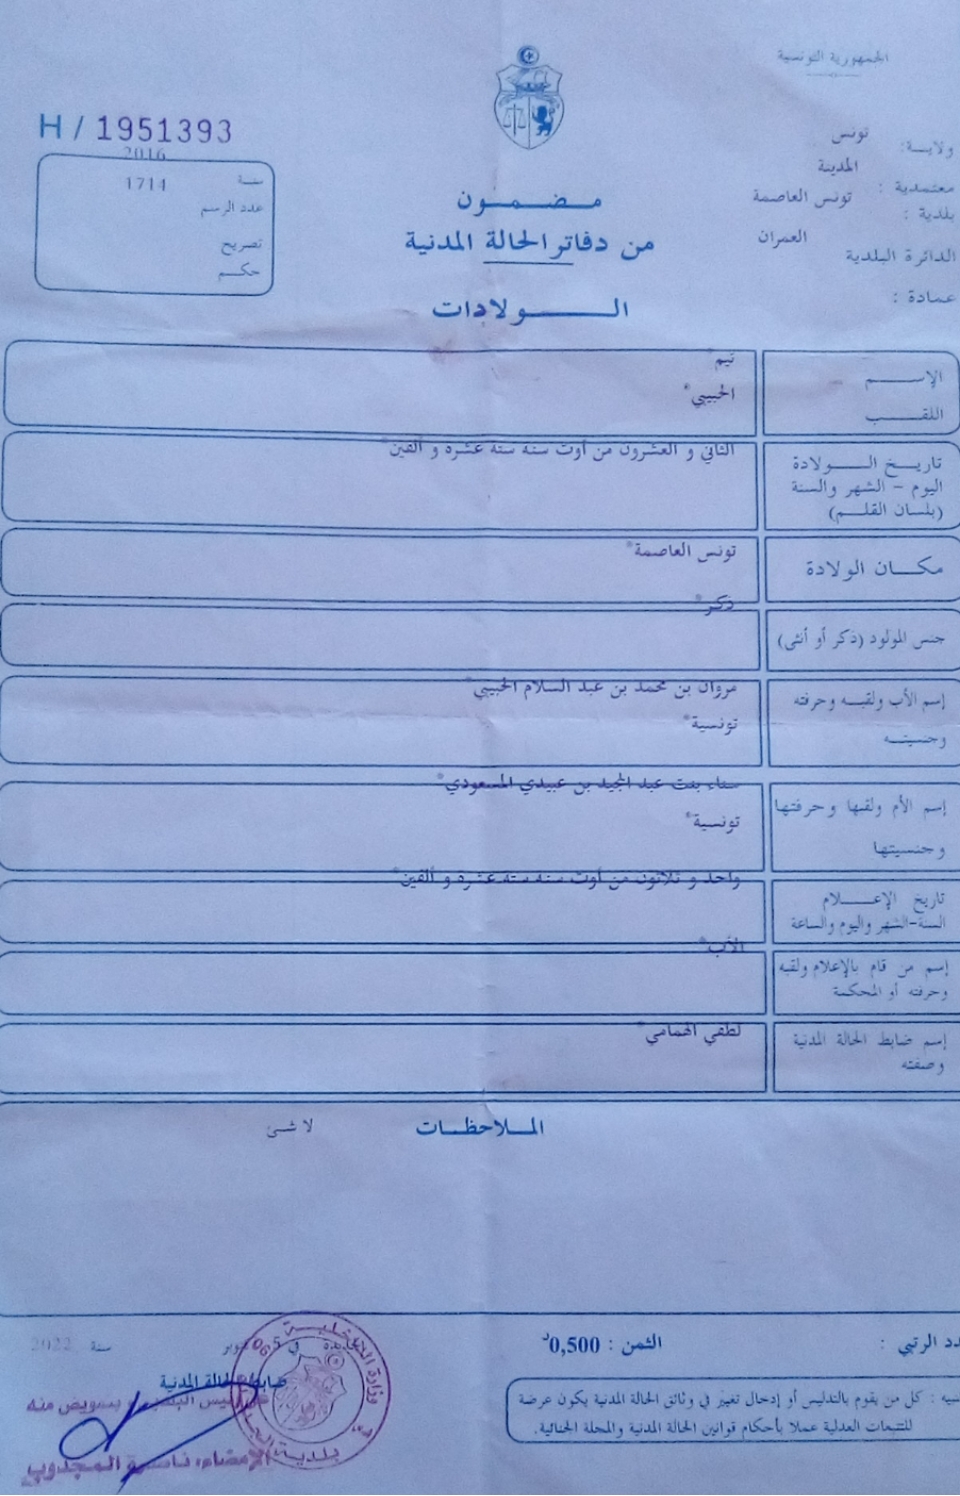 الجمهورية التونسية
H / 1951393
ولاية: تونس
معتمدية : المدينة
بلدية : تونس العاصمة
الدائرة البلدية العمران
عمادة :
سنة 2016
عدد الرسم 1714
تصريح
حكم
مضمون
من دفاتر الحالة المدنية
الولادات
الإسم تيم
اللقب الحبيبي*
تاريخ الولادة
اليوم - الشهر والسنة
(بلسان القلم)
الثاني و العشرون من أوت سنة ستة عشرة و ألفين*
مكان الولادة تونس العاصمة*
جنس المولود (ذكر أو أنثى) ذكر*
إسم الأب ولقبه وحرفته
وجنسيته
مروان بن محمد بن عبد السلام الحبيبي*
تونسية*
إسم الأم ولقبها وحرفتها
وجنسيتها
سناء بنت عبد المجيد بن عبيدي المسعودي*
تونسية*
تاريخ الإعلام
السنة-الشهر واليوم والساعة
واحد و ثلاثون من أوت سنة ستة عشرة و ألفين*
إسم من قام بالإعلام ولقبه
وحرفته أو المحكمة
الأب*
إسم ضابط الحالة المدنية
وصفته
لطفي الهمامي*
الملاحظات لا شئ
الثمن : 0,500د
في 5 سنة 2022
ضابط الحالة المدنية
بتفويض منه
الإمضاء:
المجدوب
وزارة الداخلية
بلدية
كل من يقوم بالتدليس أو إدخال تغيير في وثائق الحالة المدنية يكون عرضة
للتتبعات العدلية عملا بأحكام قوانين الحالة المدنية والمجلة الجنائية.